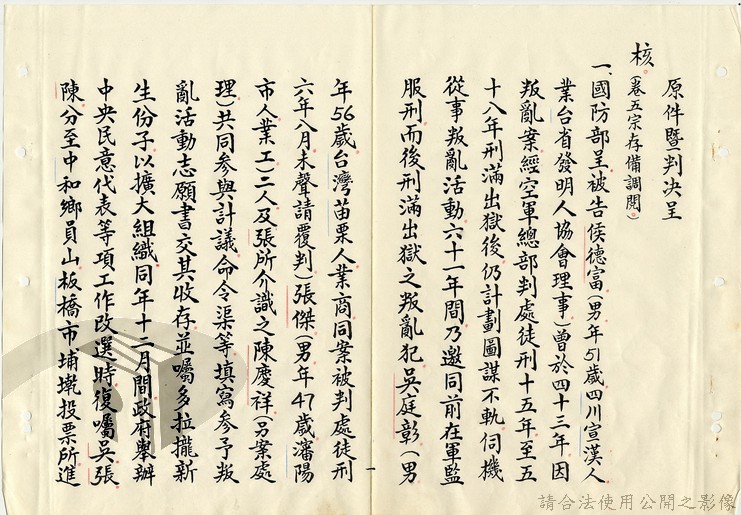 原件暨判決呈
核(卷五宗存備調閱)
一、國防部呈被告侯德富(男年51歲四川宣漢人
業台省發明人協會理事)曾於四十三年因
叛亂案經空軍總部判處徒刑十五年至五
十八年刑滿出獄後仍計劃圖謀不軌伺機
從事叛亂活動六十一年間乃邀同前在軍監
服刑而後刑滿出獄之叛亂犯吳庭彰(男
年56歲台灣苗栗人業商同案被判處徒刑
六年八月未聲請覆判)張傑(男年47歲瀋陽
市人業工)二人及張所介識之陳慶祥(另案處
理)共同參與計議命令渠等填寫參予叛
亂活動志願書交其收存並囑多拉攏新
生份子以擴大組織同年十二月間政府舉辦
中央民意代表等項工作改選時復囑吳張
陳分至中和鄉員山板橋市埔墘投票所進
一
請合法使用公開之影像